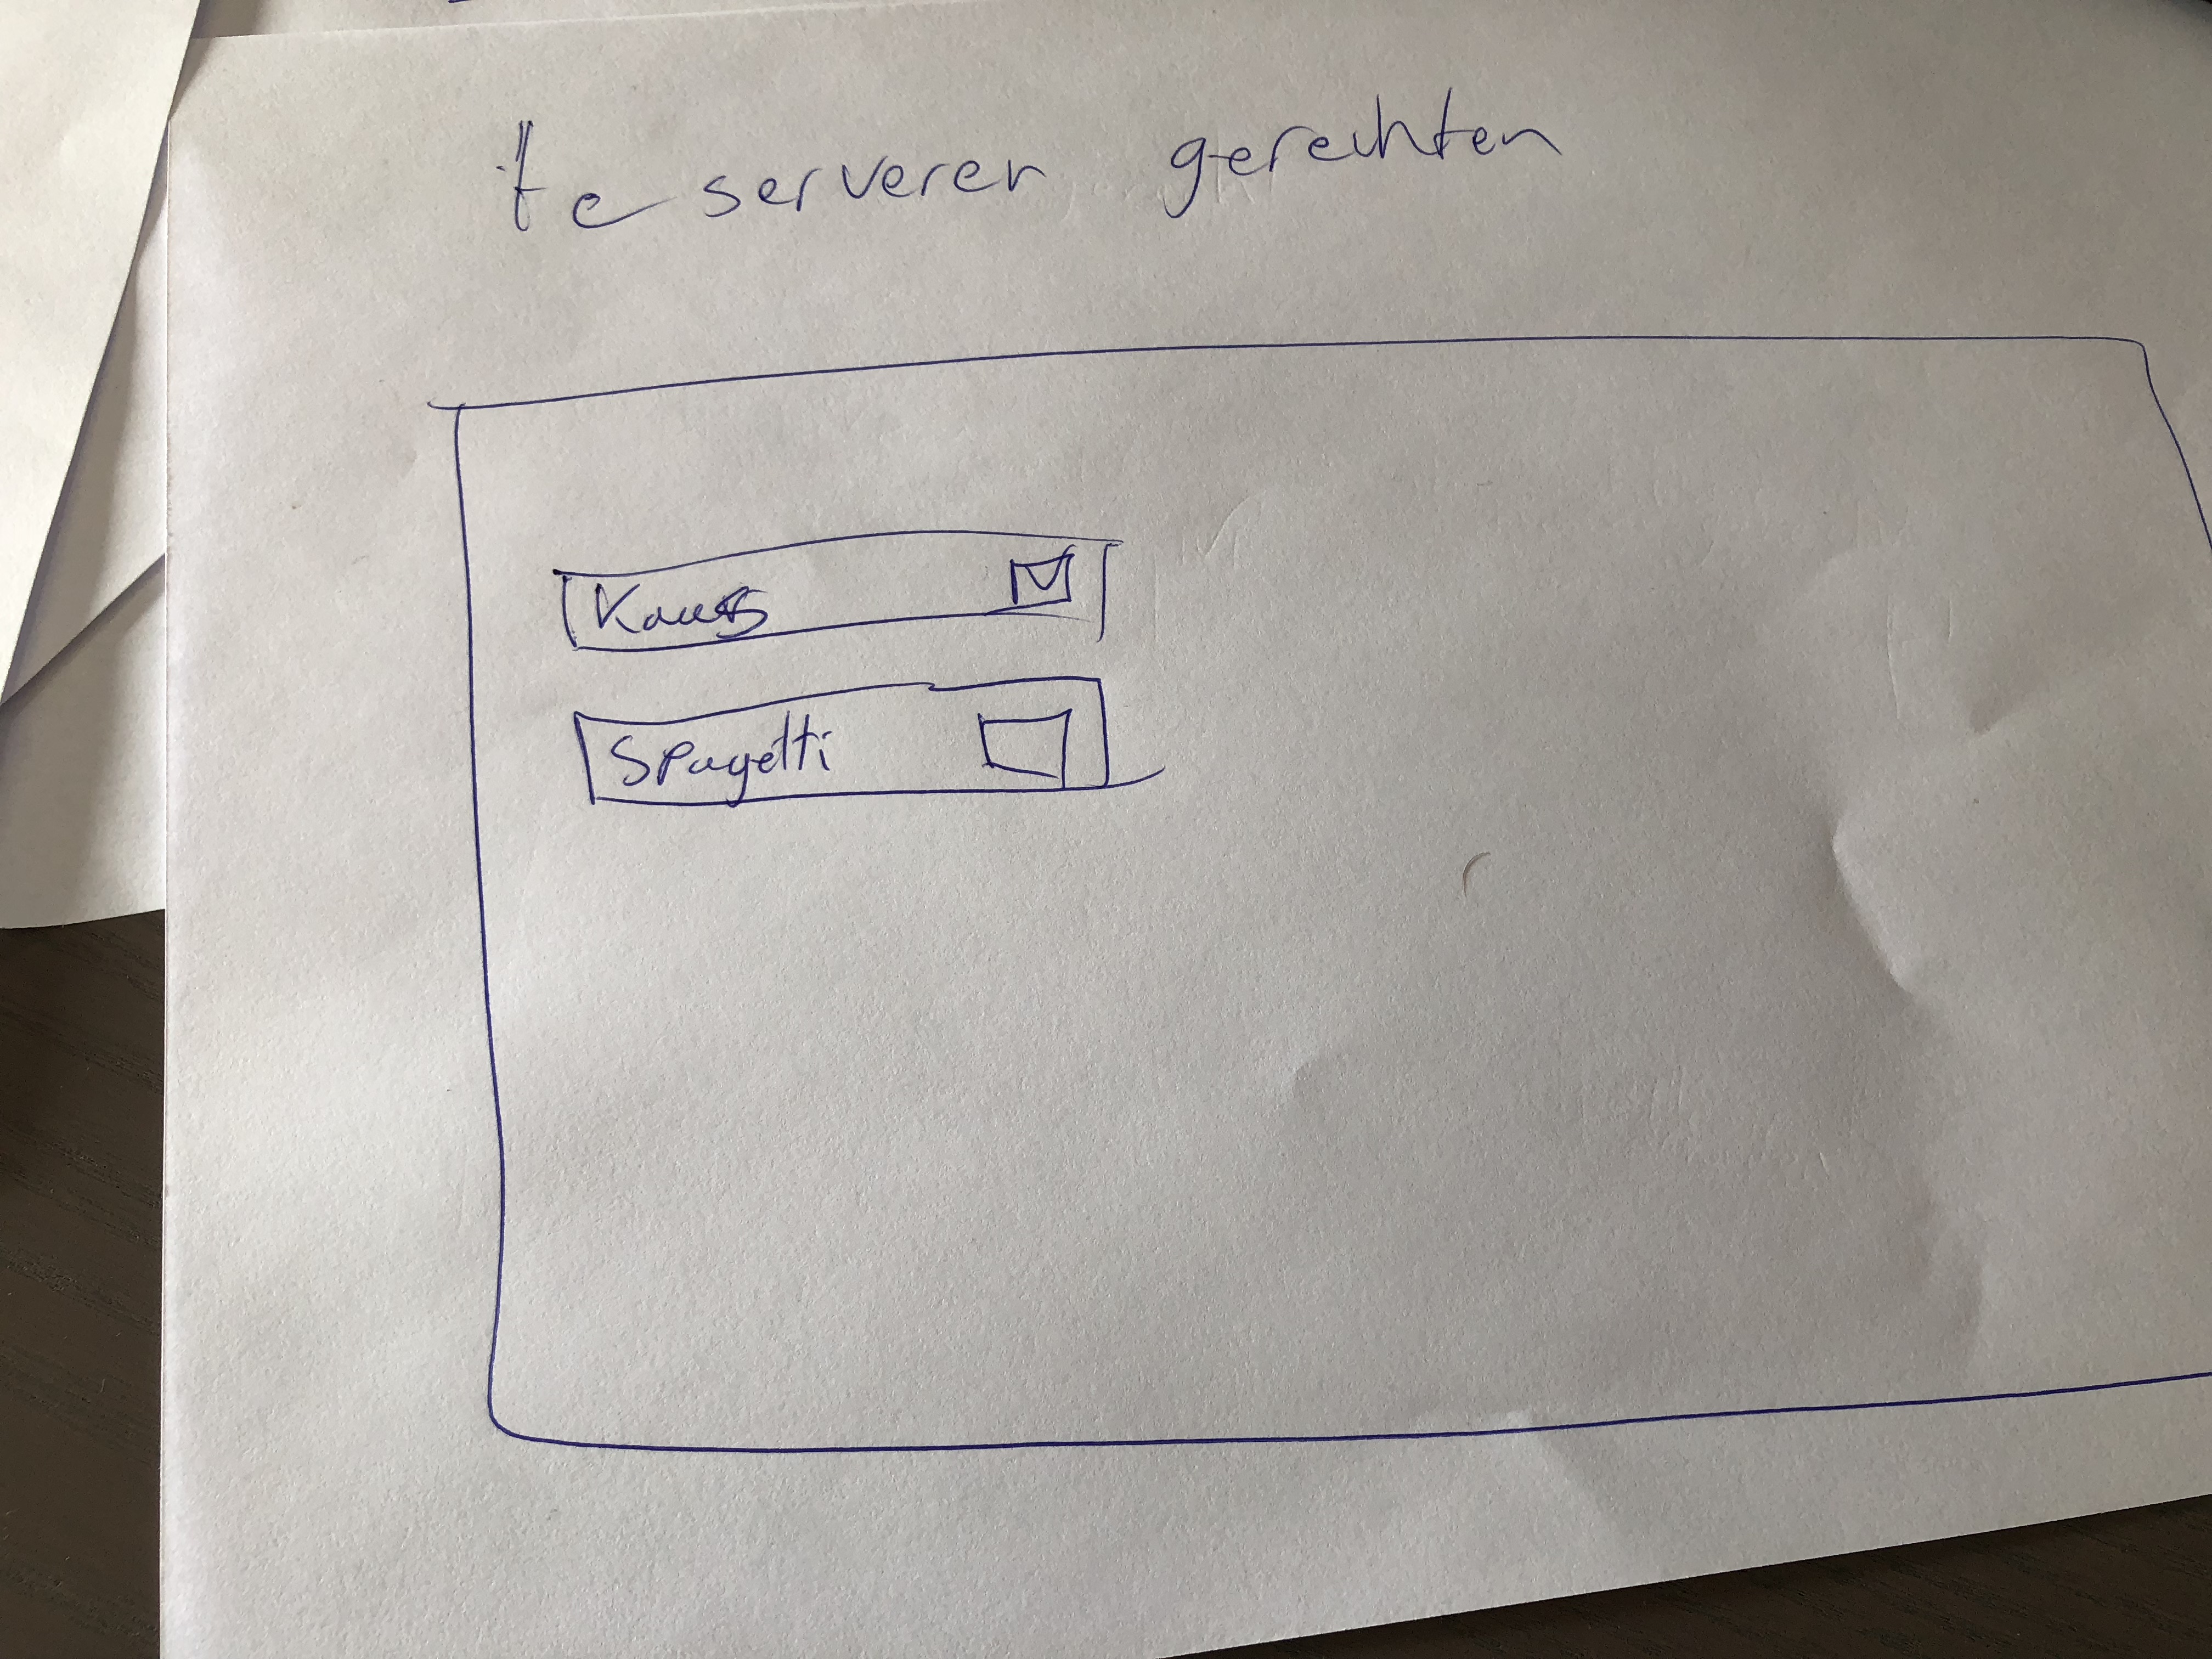 te serveren gerechten
Spagetti